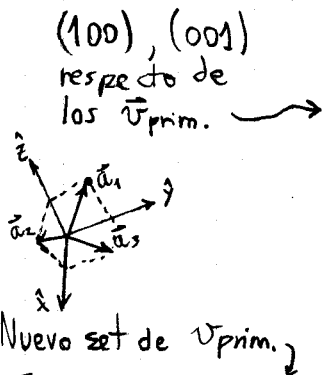 (100), (001)
respecto de
los v⃗prim.
ẑ
a⃗₁
ŷ
a⃗₂
a⃗₃
x̂
Nuevo set de v⃗prim.